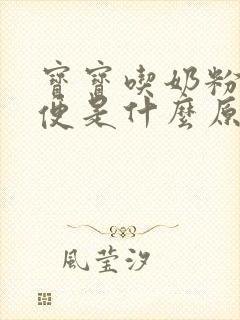 寶寶喫奶粉
便是什麼原
風瑩汐